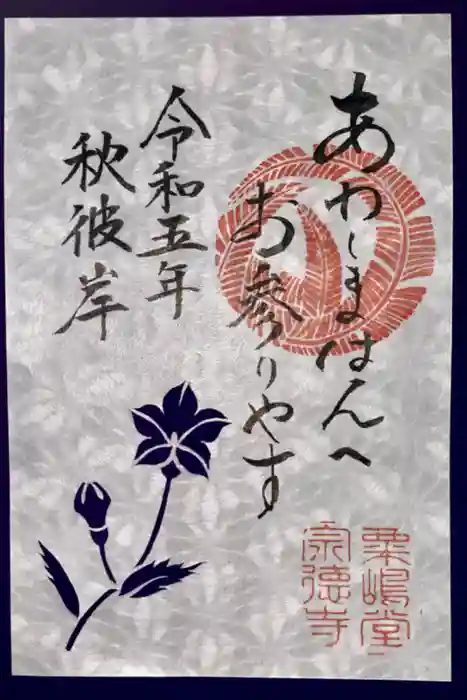 あわしまはんへ
お参りやす
令和五年
秋彼岸
粟嶋堂
宗徳寺